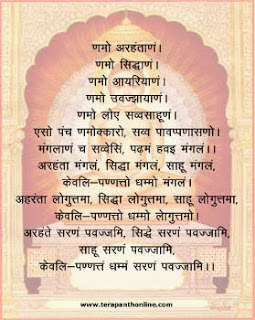 णमो अरहंताणं।
णमो सिद्धाणं।
णमो आयरियाणं।
णमो उवज्झायाणं।
णमो लोए सव्वसाहूणं।
एसो पंच णमोक्कारो, सव्व पावप्पणासणो।
मंगलाणं च सव्वेसिं, पढ़मं हवइ मंगलं।।
अरहंता मंगलं, सिद्धा मंगलं, साहू मंगलं,
केवलि–पण्णत्तो धम्मो मंगलं।
अहरंता लोगुत्तमा, सिद्धा लोगुत्तमा, साहू लोगुत्तमा,
केवलि–पण्णत्तो धम्मो लोगुत्तमो।
अरहंते सरणं पवज्जामि, सिद्धे सरणं पवज्जामि,
साहू सरणं पवज्जामि,
केवलि–पण्णत्तं धम्मं सरणं पवज्जामि।।
www.terapanthonline.com